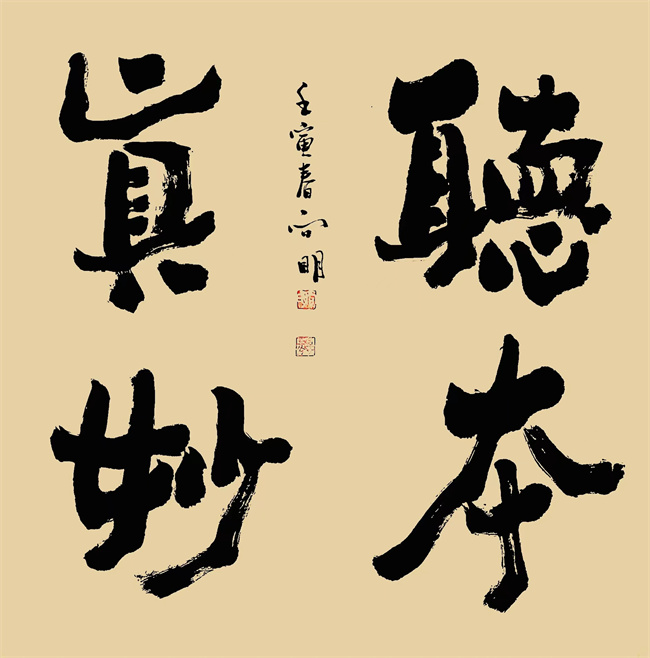 聽本
眞妙
壬寅春向明